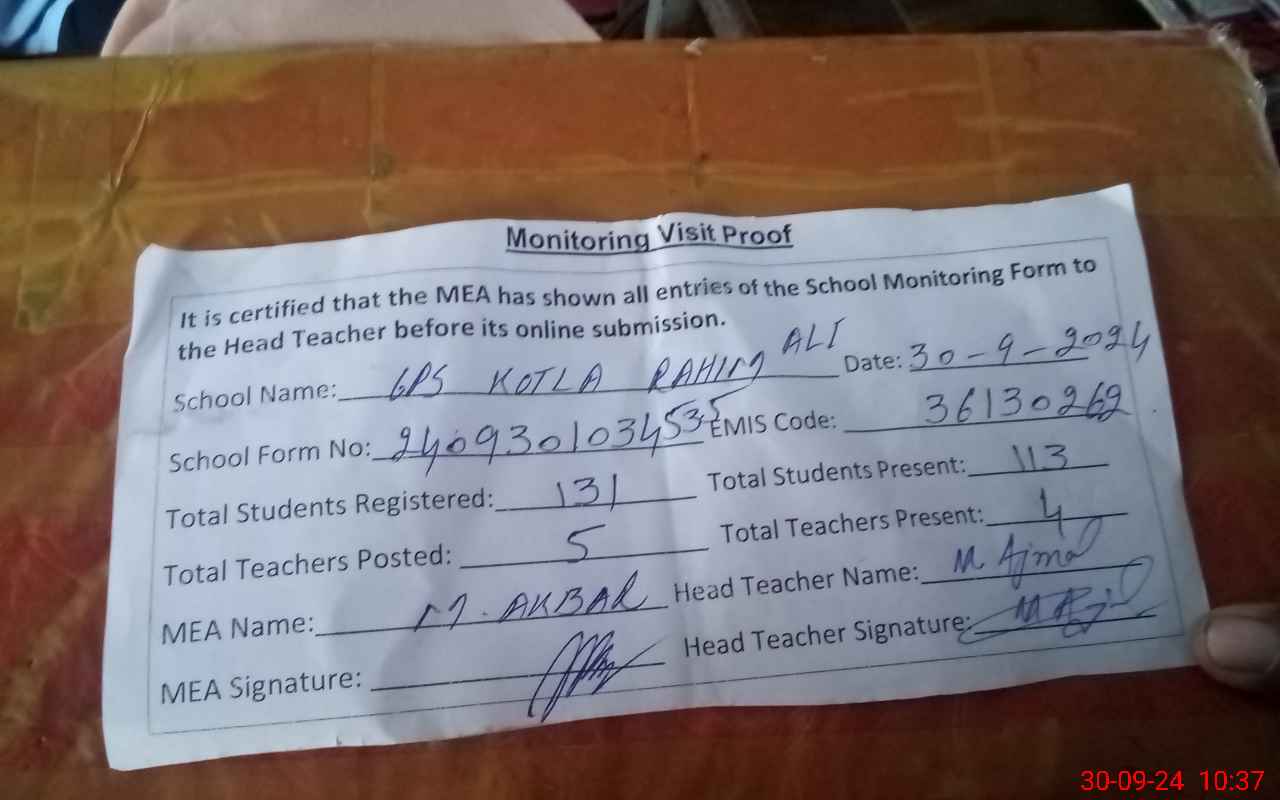 Monitoring Visit Proof
It is certified that the MEA has shown all entries of the School Monitoring Form to
the Head Teacher before its online submission.
School Name: GPS KOTLA RAHIM ALI Date: 30-9-2024
School Form No: 2409301034535 EMIS Code: 36130262
Total Students Registered: 131 Total Students Present: 113
Total Teachers Posted: 5 Total Teachers Present: 4
MEA Name: M. AKBAR Head Teacher Name: M. Ajmal
MEA Signature: Head Teacher Signature:
30-09-24 10:37